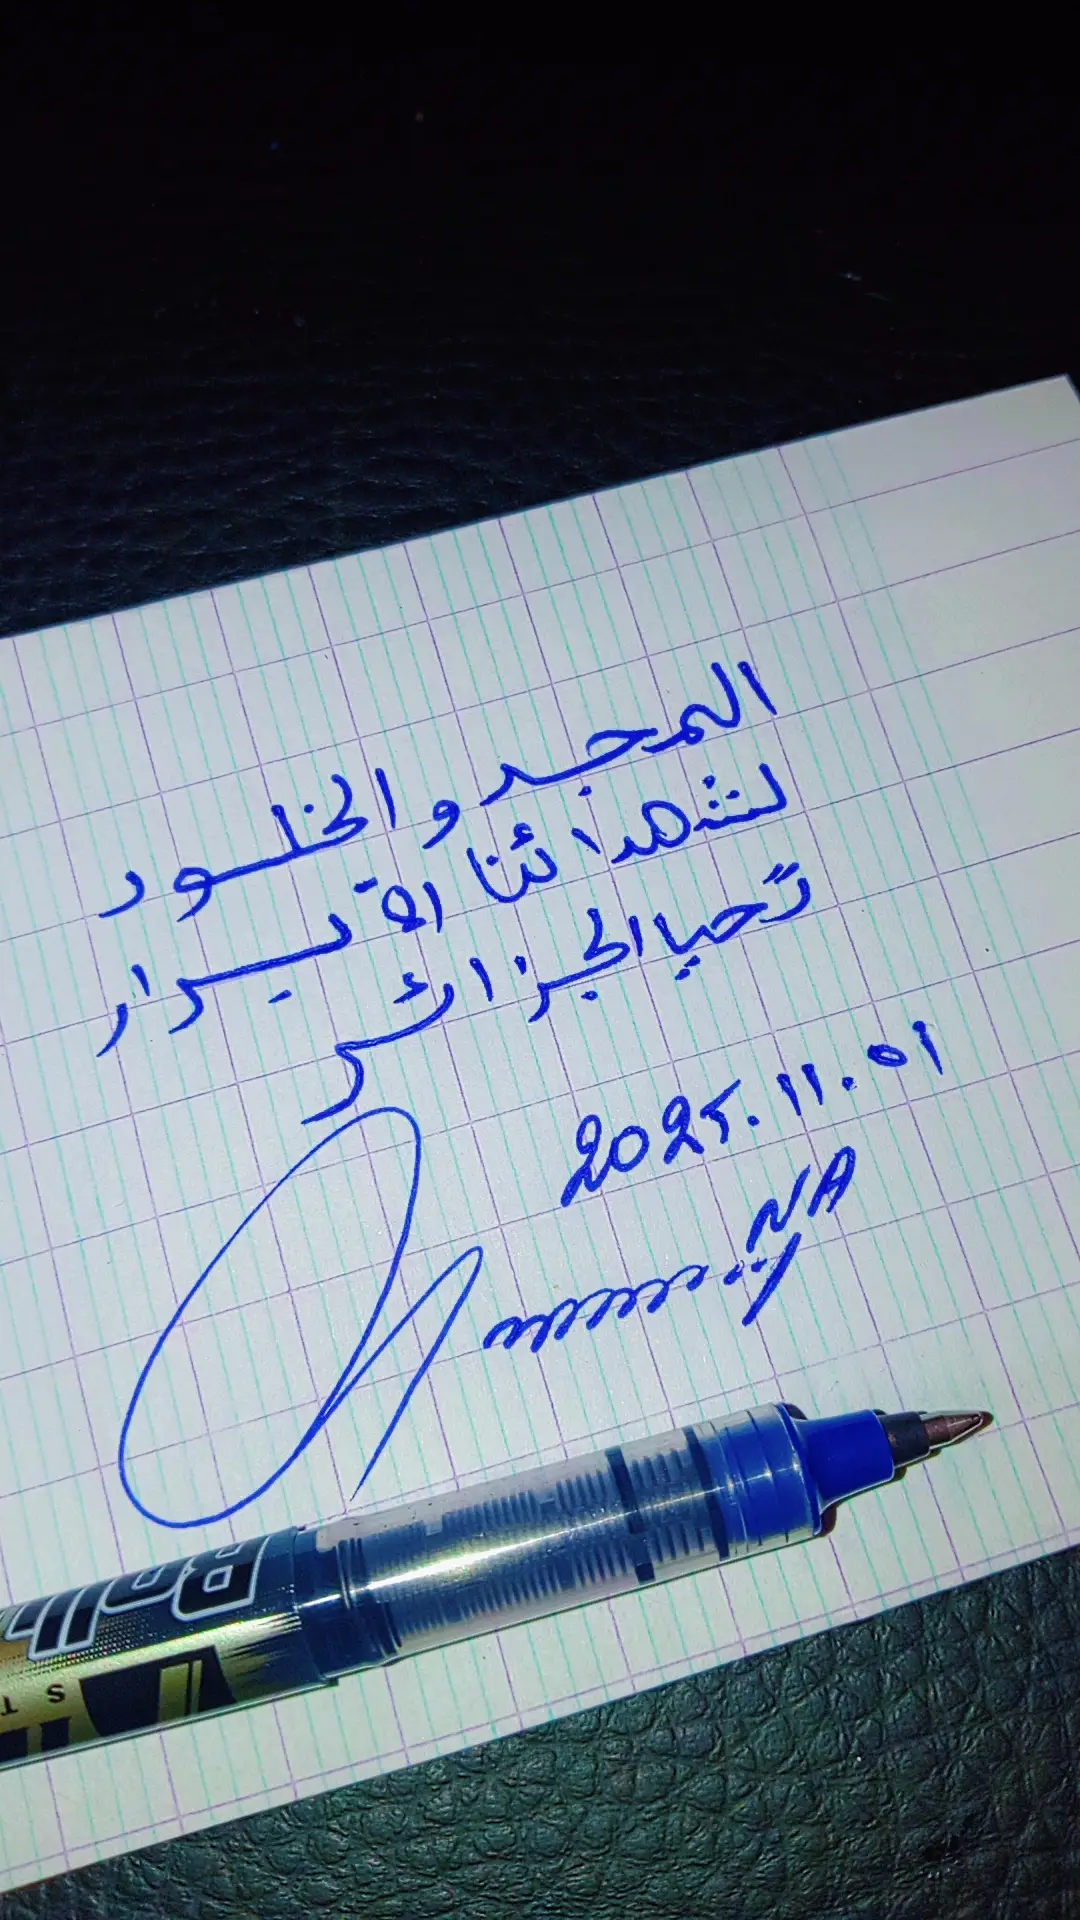 المجد والخلود
لشهدائنا الأبرار
تحيا الجزائر
2025.11.01
NA
Roll